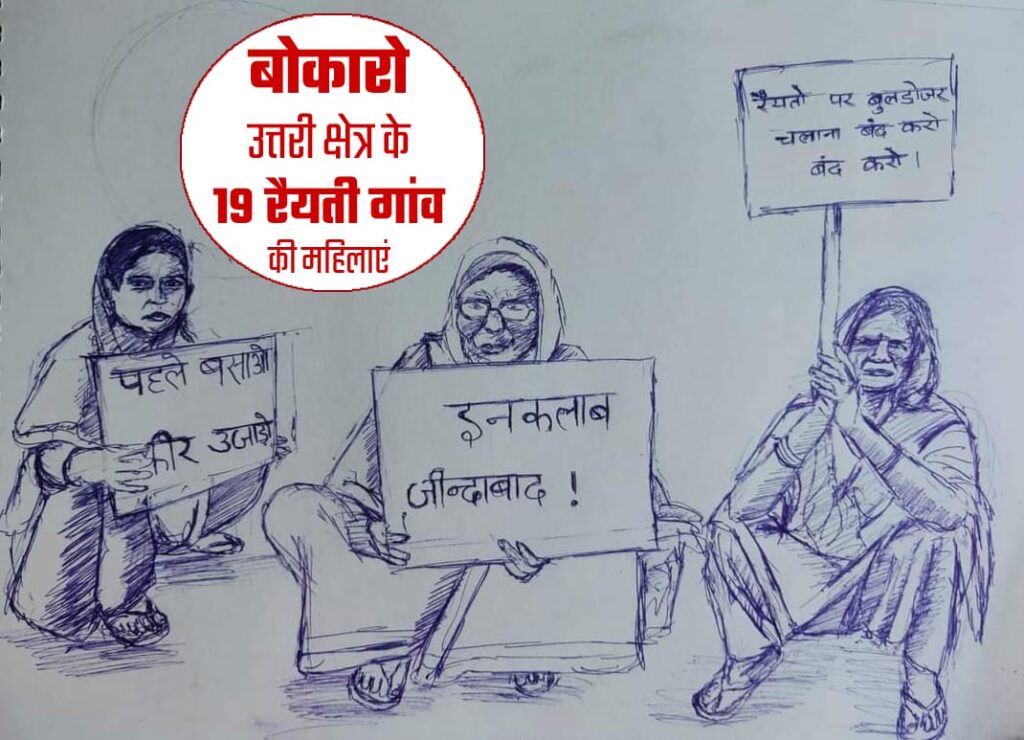 बोकारो
उत्तरी क्षेत्र के
19 रैयती गांव
की महिलाएं
रैयतो पर बुलडोजर
चलाना बंद करो
बंद करो।
पहले बसाओ
फीर उजाड़ो
इनकलाब
जीन्दाबाद !